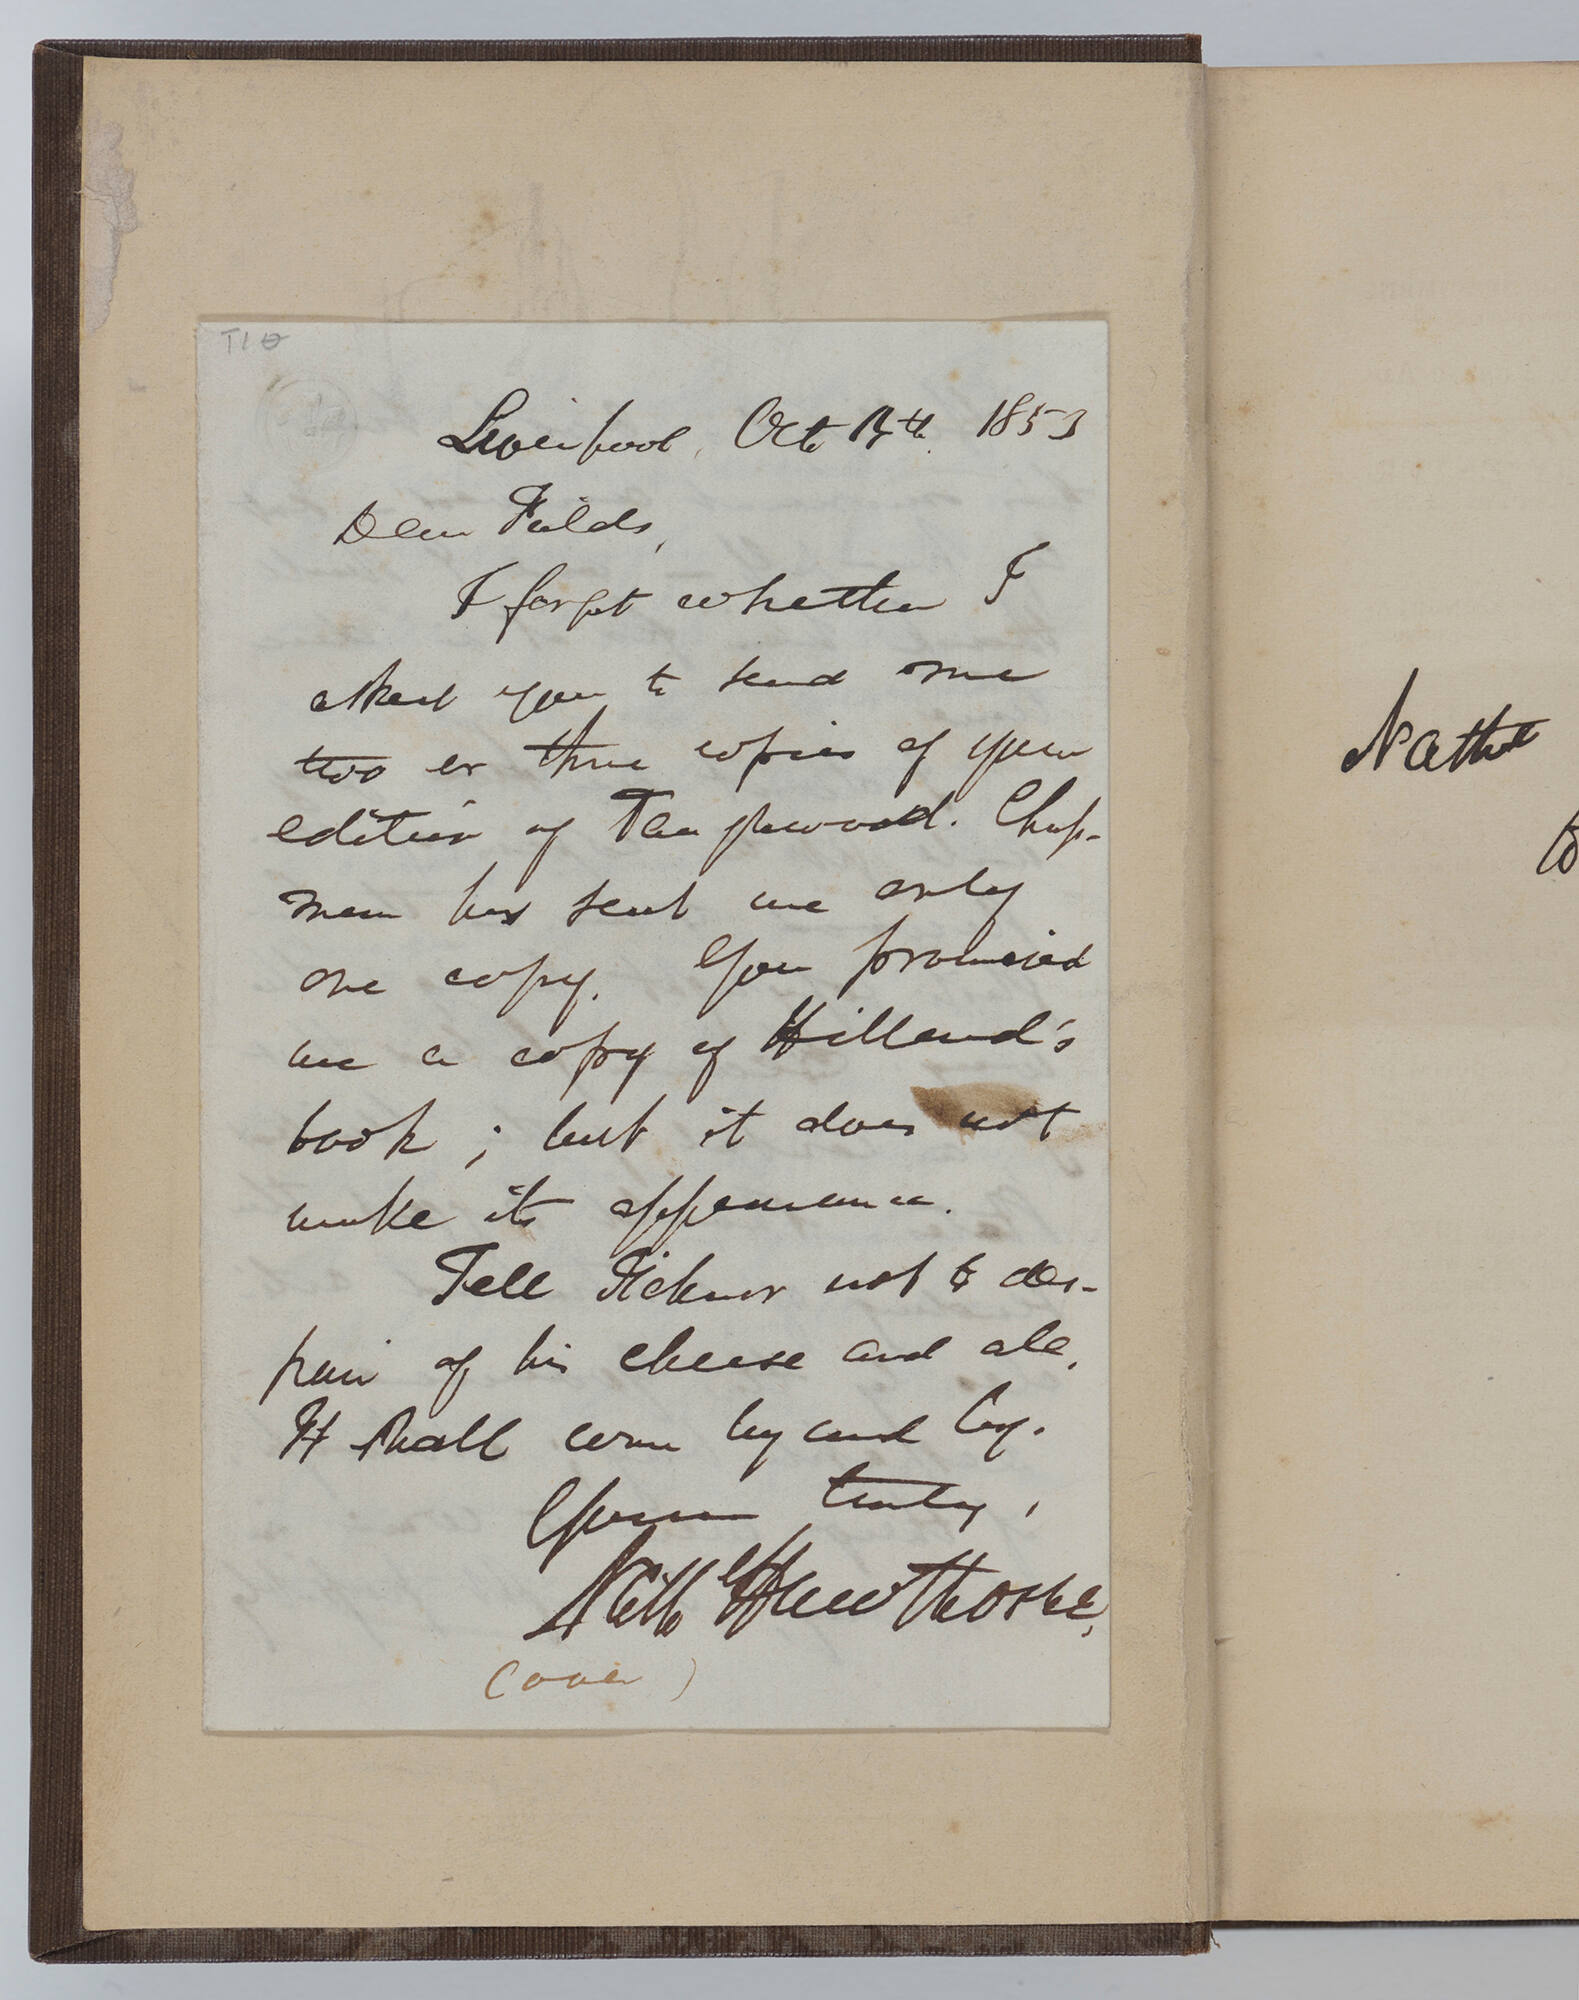 T10
Liverpool, Oct. 14th. 1853
Dear Fields,
I forget whether I
asked you to send me
two or three copies of your
edition of Tanglewood. Chap-
man has sent me only
one copy. You promised
me a copy of Hillard's
book; but it does not
make its appearance.
Tell Ticknor not to des-
pair of his cheese and ale.
It shall come by and by.
Yours truly,
Nath Hawthorne.
(over)
Nath